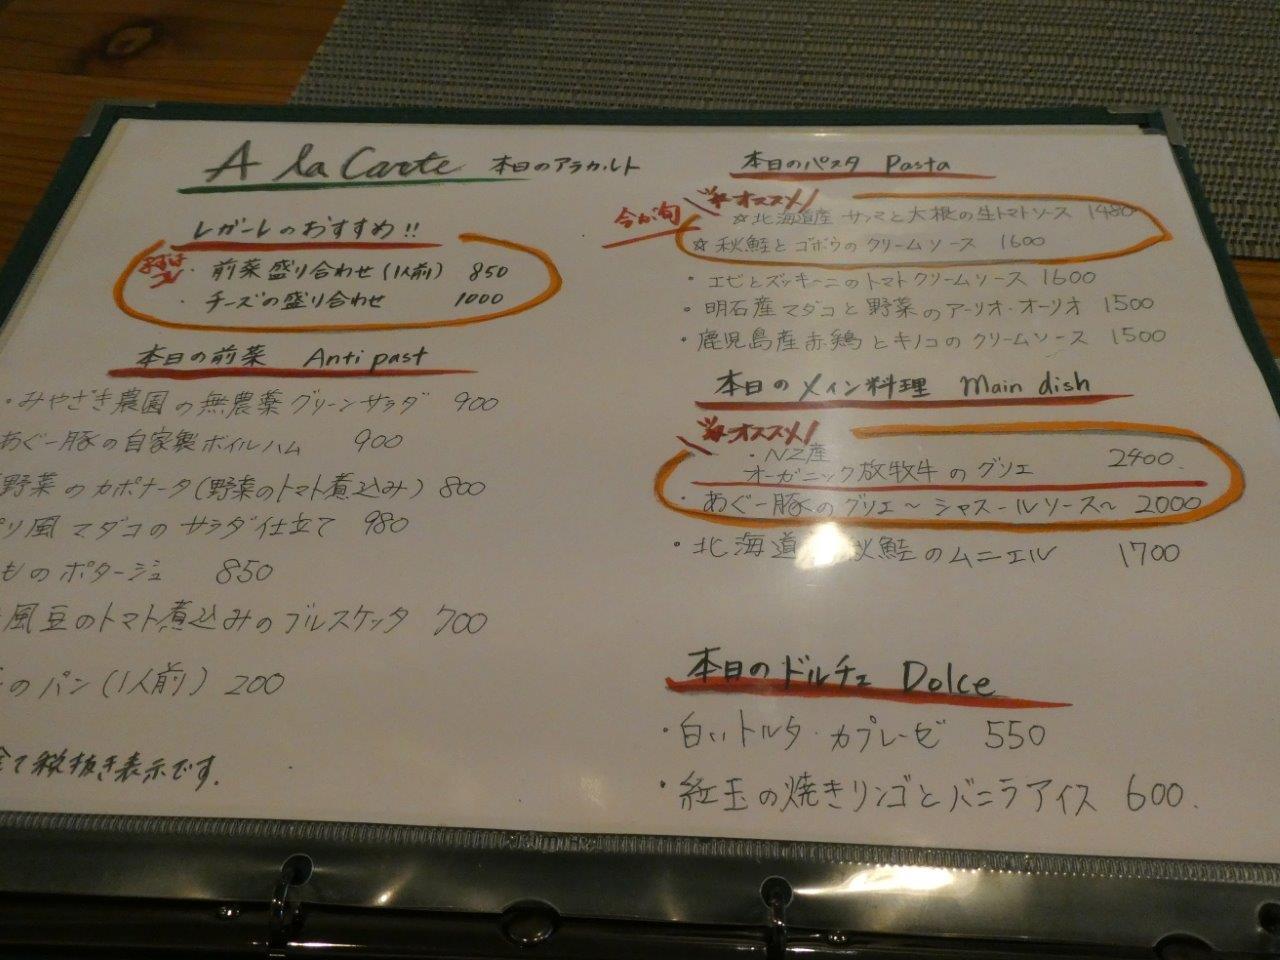 A la Carte 本日のアラカルト
レガーレのおすすめ!!
まずはコレ
・前菜盛り合わせ(1人前) 850
・チーズの盛り合わせ 1000
本日の前菜 Antipast
・みやざき農園の無農薬グリーンサラダ 900
あぐー豚の自家製ボイルハム 900
野菜のカポナータ(野菜のトマト煮込み) 800
リ風マダコのサラダ仕立て 980
ものポタージュ 850
風豆のトマト煮込みのブルスケッタ 700
のパン(1人前) 200
全て税抜き表示です.
本日のパスタ Pasta
今が旬
オススメ!
☆北海道産サンマと大根の生トマトソース 1480
☆秋鮭とゴボウのクリームソース 1600
・エビとズッキーニのトマトクリームソース 1600
・明石産マダコと野菜のアーリオ・オーリオ 1500
・鹿児島産赤鶏とキノコのクリームソース 1500
本日のメイン料理 Main dish
オススメ!
・NZ産
オーガニック放牧牛のグリエ 2400.
・あぐー豚のグリエ〜シャスールソース〜 2000
・北海道 秋鮭のムニエル 1700
本日のドルチェ Dolce
・白いトルタ・カプレーゼ 550
・紅玉の焼きリンゴとバニラアイス 600.